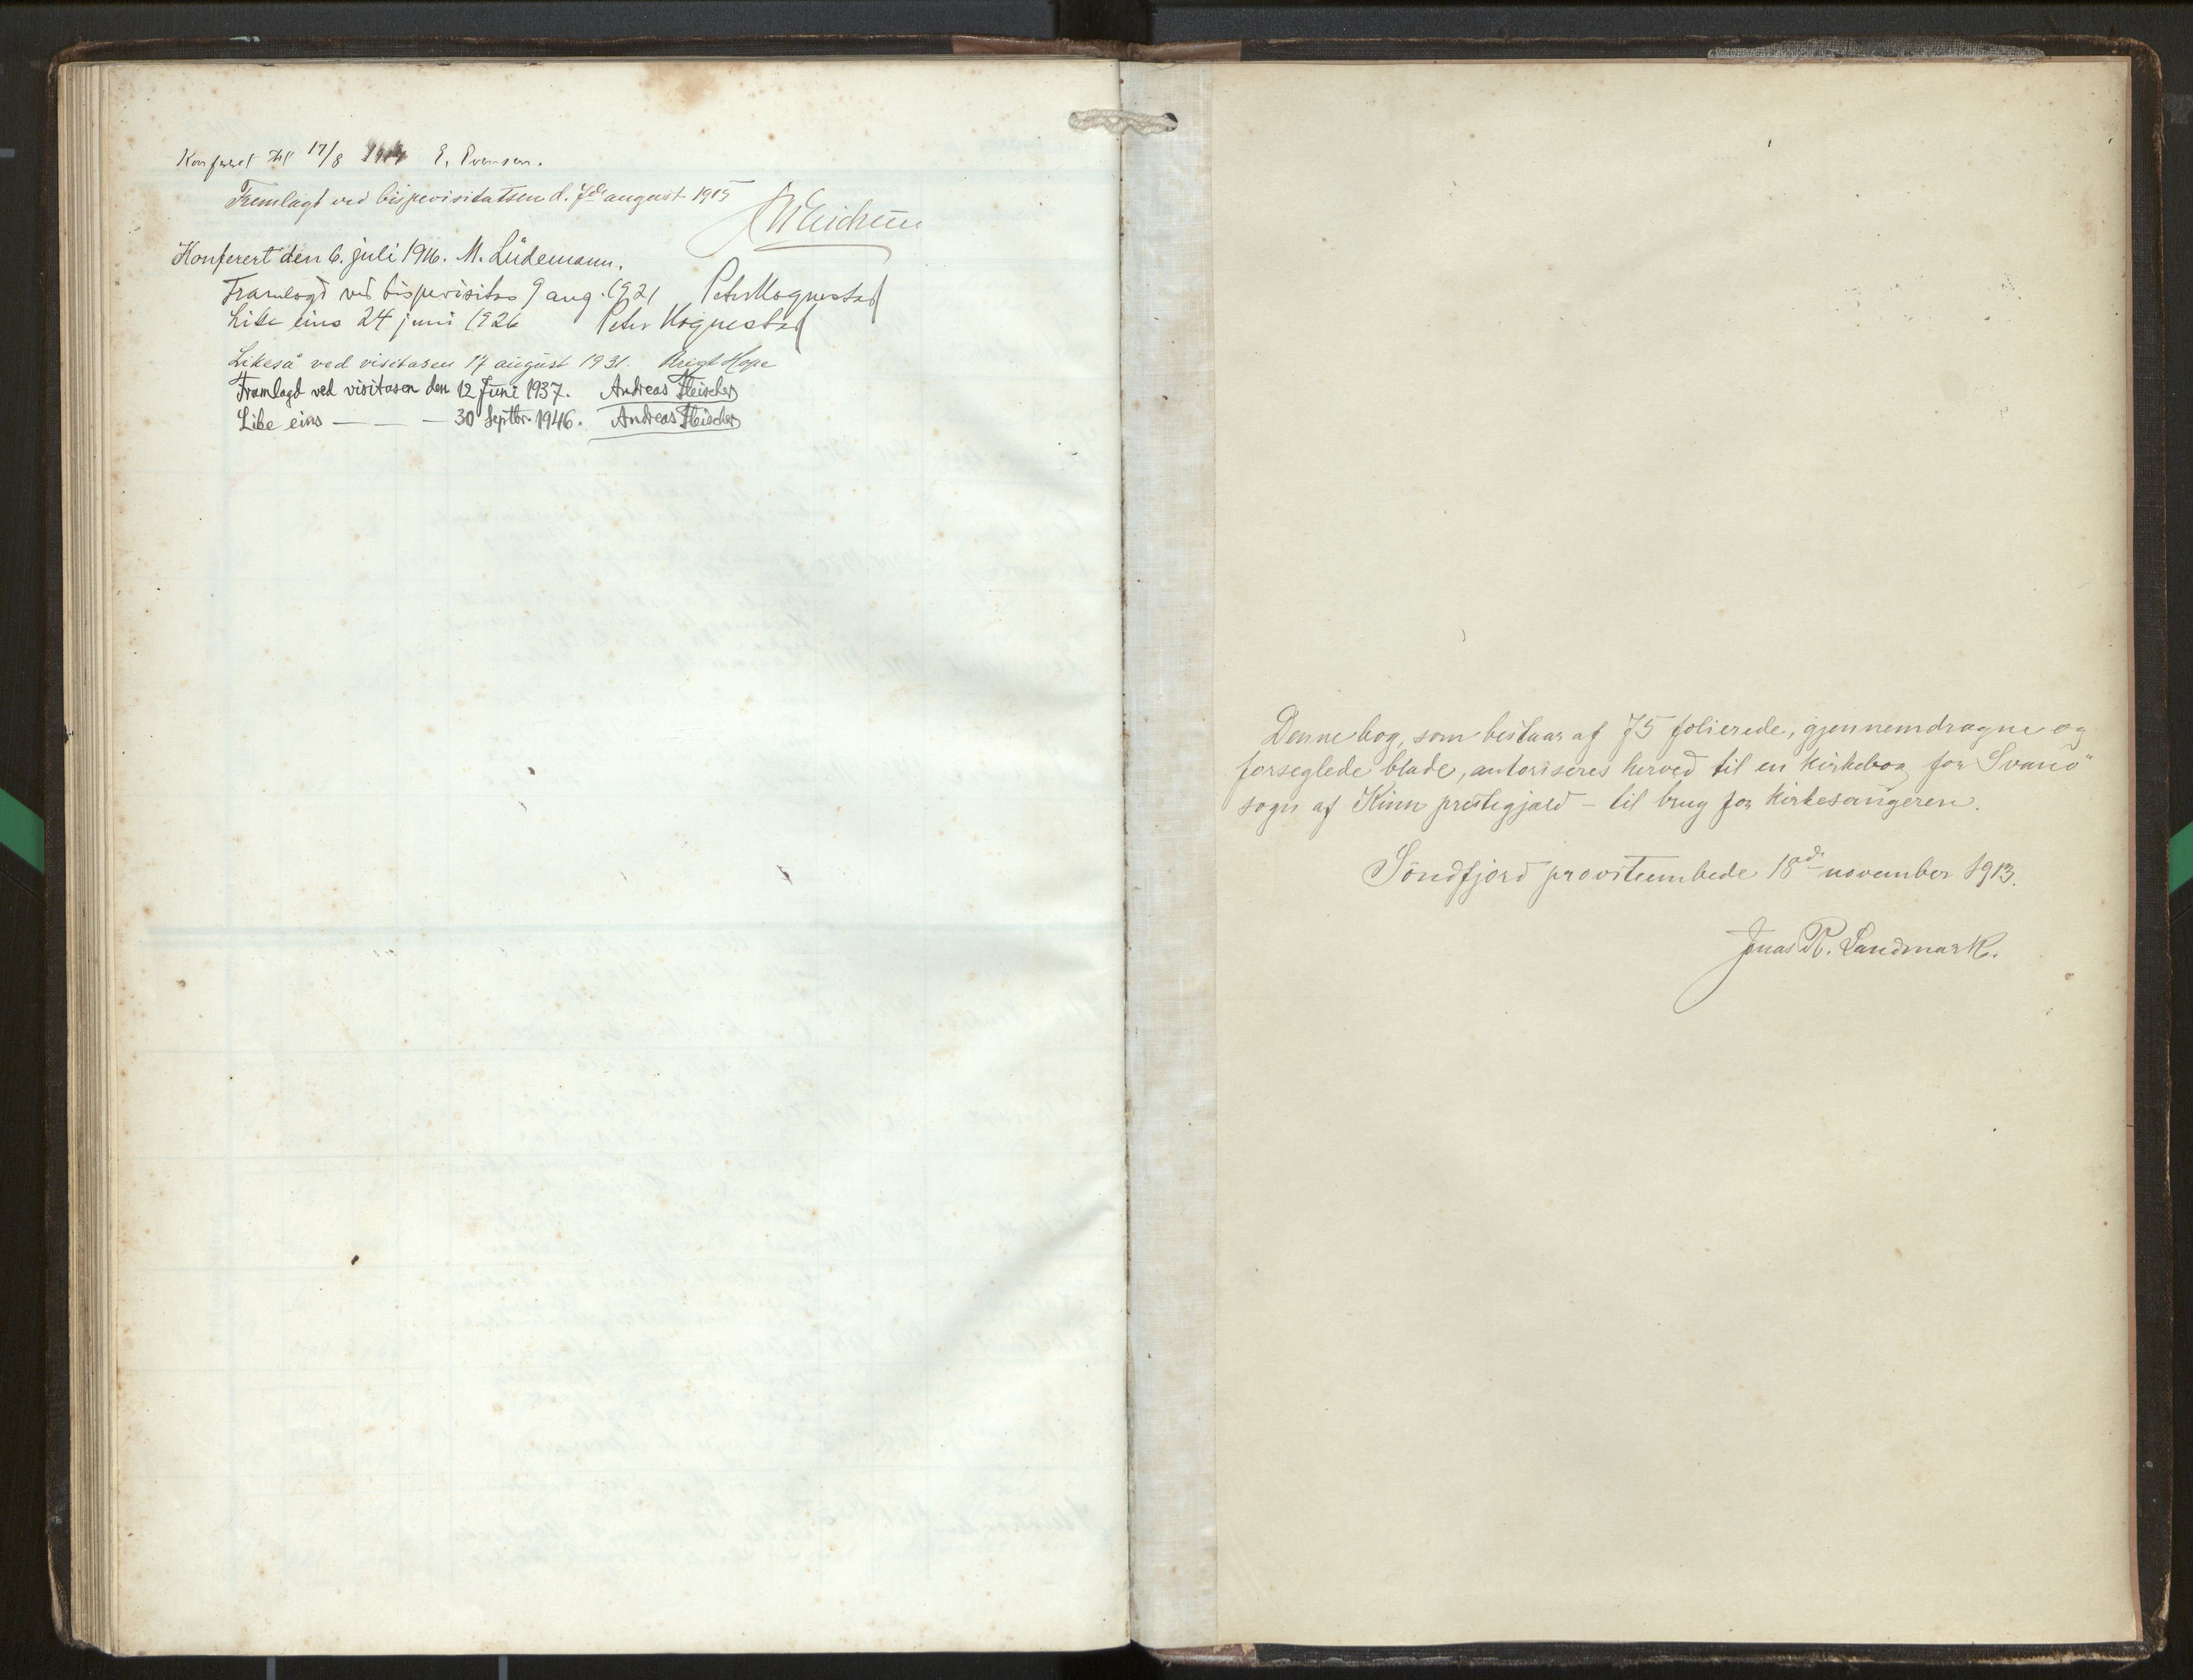 Konferert 17/8 1914 E. Evensen.
Fremlagt ved bispevisitatsen d. 7de august 1915
Konferert den 6. juli 1916. M. Lüdemann.
Framlagd ved bispevisitas 9 aug. 1921 Peter Hognestad
Like eins 24 juni 1926 Peter Hognestad
Likeså ved visitasen 17 august 1931. Hope
Framlagd ved visitasen den 12 Juni 1937. Andreas Fleischer
Like eins — — — 30 Septbr. 1946. Andreas Fleischer
Denne bog, som bestaar af 75 folierede, gjennemdragne og
forseglede blade, autoriseres herved til en kirkebog for Svanø
sogn af Kinn prestegjæld – til brug for kirkesangeren.
Søndfjord provsteembede 18de november 1913.
Jonas R. Landmark.